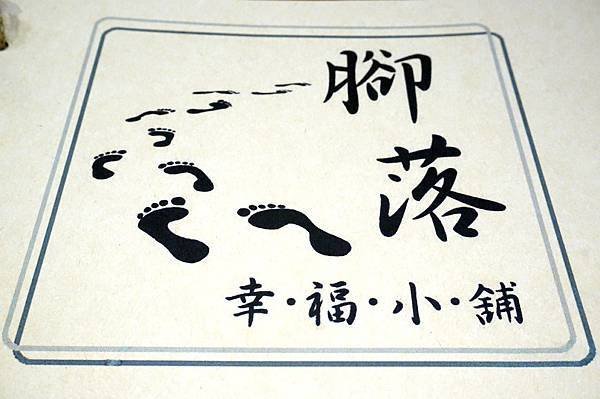 腳落
幸·福·小·舖